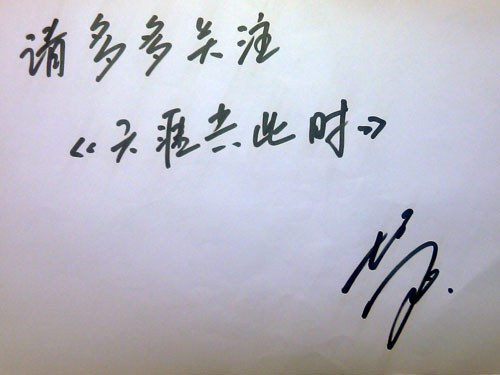 请多多关注
《天涯共此时》